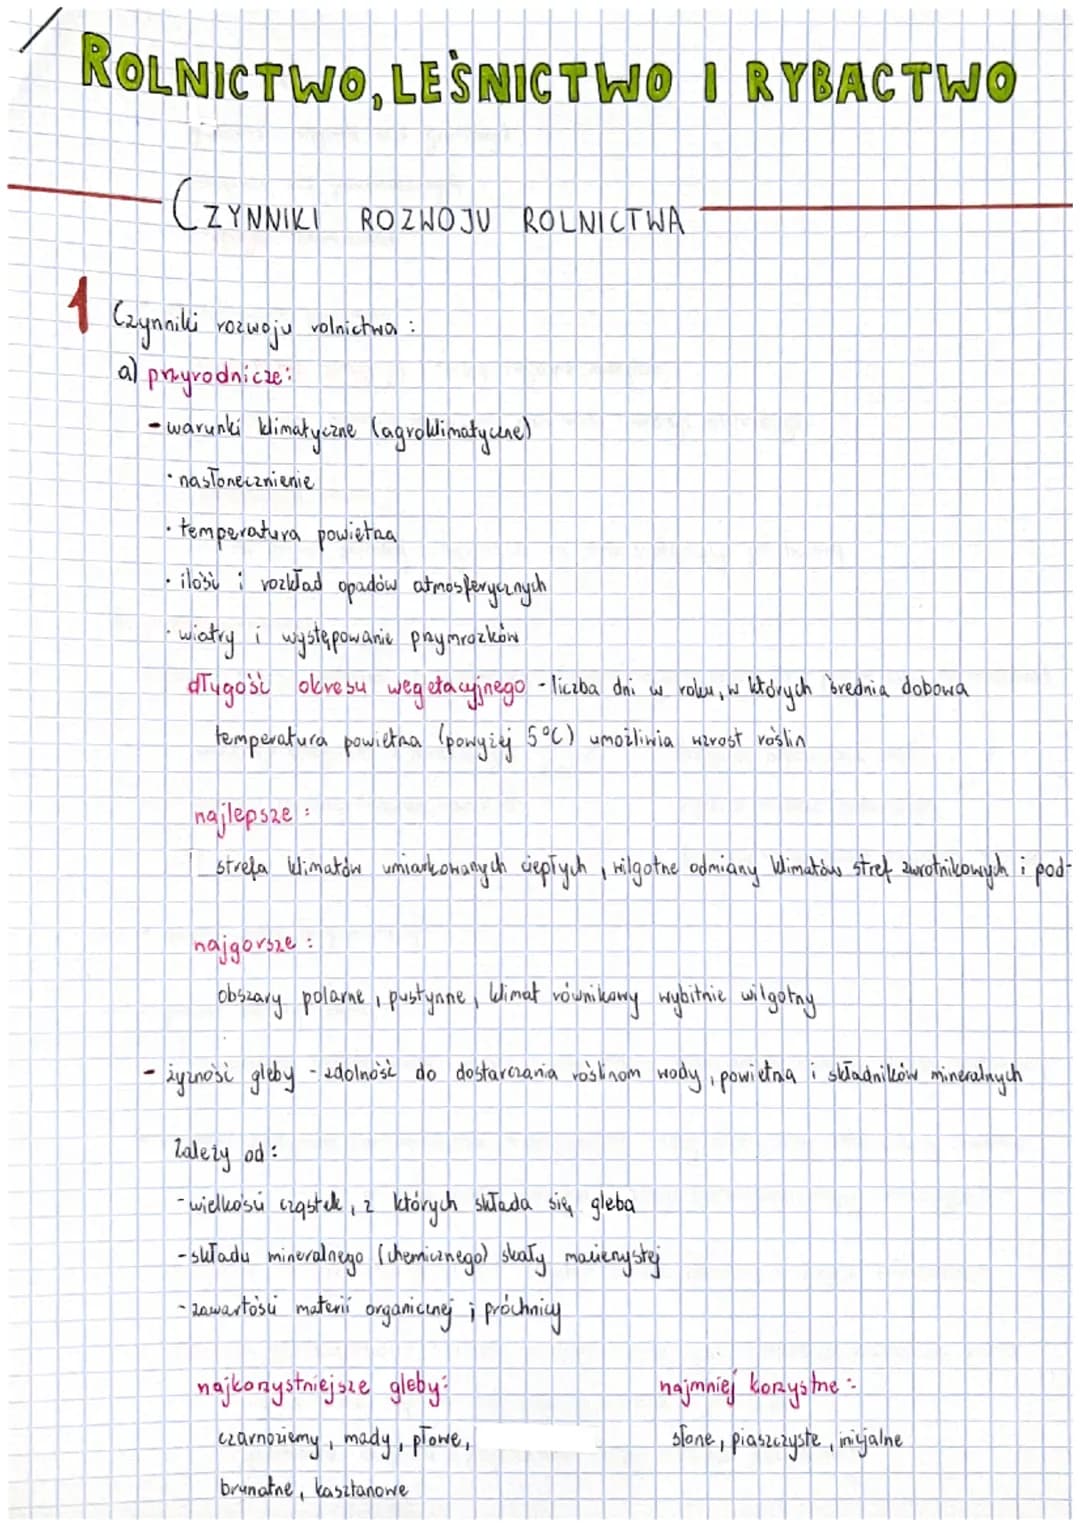 ROLNICTWO, LEŚNICTWO I RYBACTWO
CZYNNIKI ROZWOJU ROLNICTWA
1 Czynniki rozwoju rolnictwa :
a) przyrodnicze:
- warunki klimatyczne (agroklimatyczne)
· nasłonecznienie
· temperatura powietrza
· ilość i rozkład opadów atmosferycznych
· wiatry i występowanie przymrozków
długość okresu wegetacyjnego - liczba dni w roku, w których średnia dobowa
temperatura powietrza (powyżej 5°C) umożliwia wzrost roślin
najlepsze :
strefa klimatów umiarkowanych ciepłych, wilgotne odmiany klimatów stref zwrotnikowych i pod-
najgorsze :
obszary polarne, pustynne, klimat równikowy wybitnie wilgotny
- żyzność gleby - zdolność do dostarczania roślinom wody, powietrza i składników mineralnych
Zależy od :
- wielkości cząstek, z których składa się gleba
- składu mineralnego (chemicznego) skały macierzystej
- zawartości materii organicznej i próchnicy
najkorzystniejsze gleby: najmniej korzystne :
czarnoziemy, mady, płowe, słone, piaszczyste, inicjalne
brunatne, kasztanowe